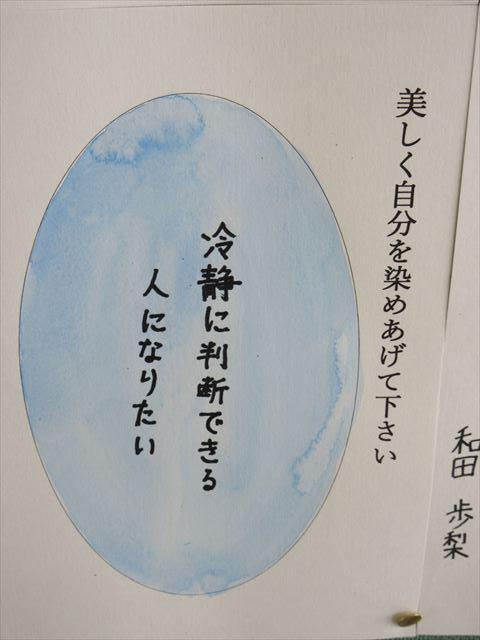 美しく自分を染めあげて下さい
冷静に判断できる
人になりたい
和田 歩梨